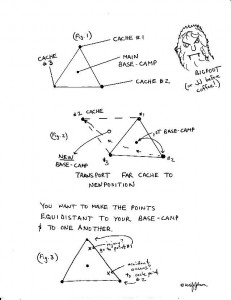 (Fig. 1)
CACHE #1
CACHE
#3
MAIN
BASE-CAMP
CACHE #2
BIGFOOT
(or JJ before
coffee!)
#2 CACHE
#1
(Fig. 2)
1st BASE-CAMP
NEW
BASE-CAMP
#3
#2
TRANSPORT FAR CACHE TO
NEW POSITION
YOU WANT TO MAKE THE POINTS
EQUIDISTANT TO YOUR BASE-CAMP
& TO ONE ANOTHER.
(Fig. 3)
go to point #1
accident
occurs?
to cache point
#2